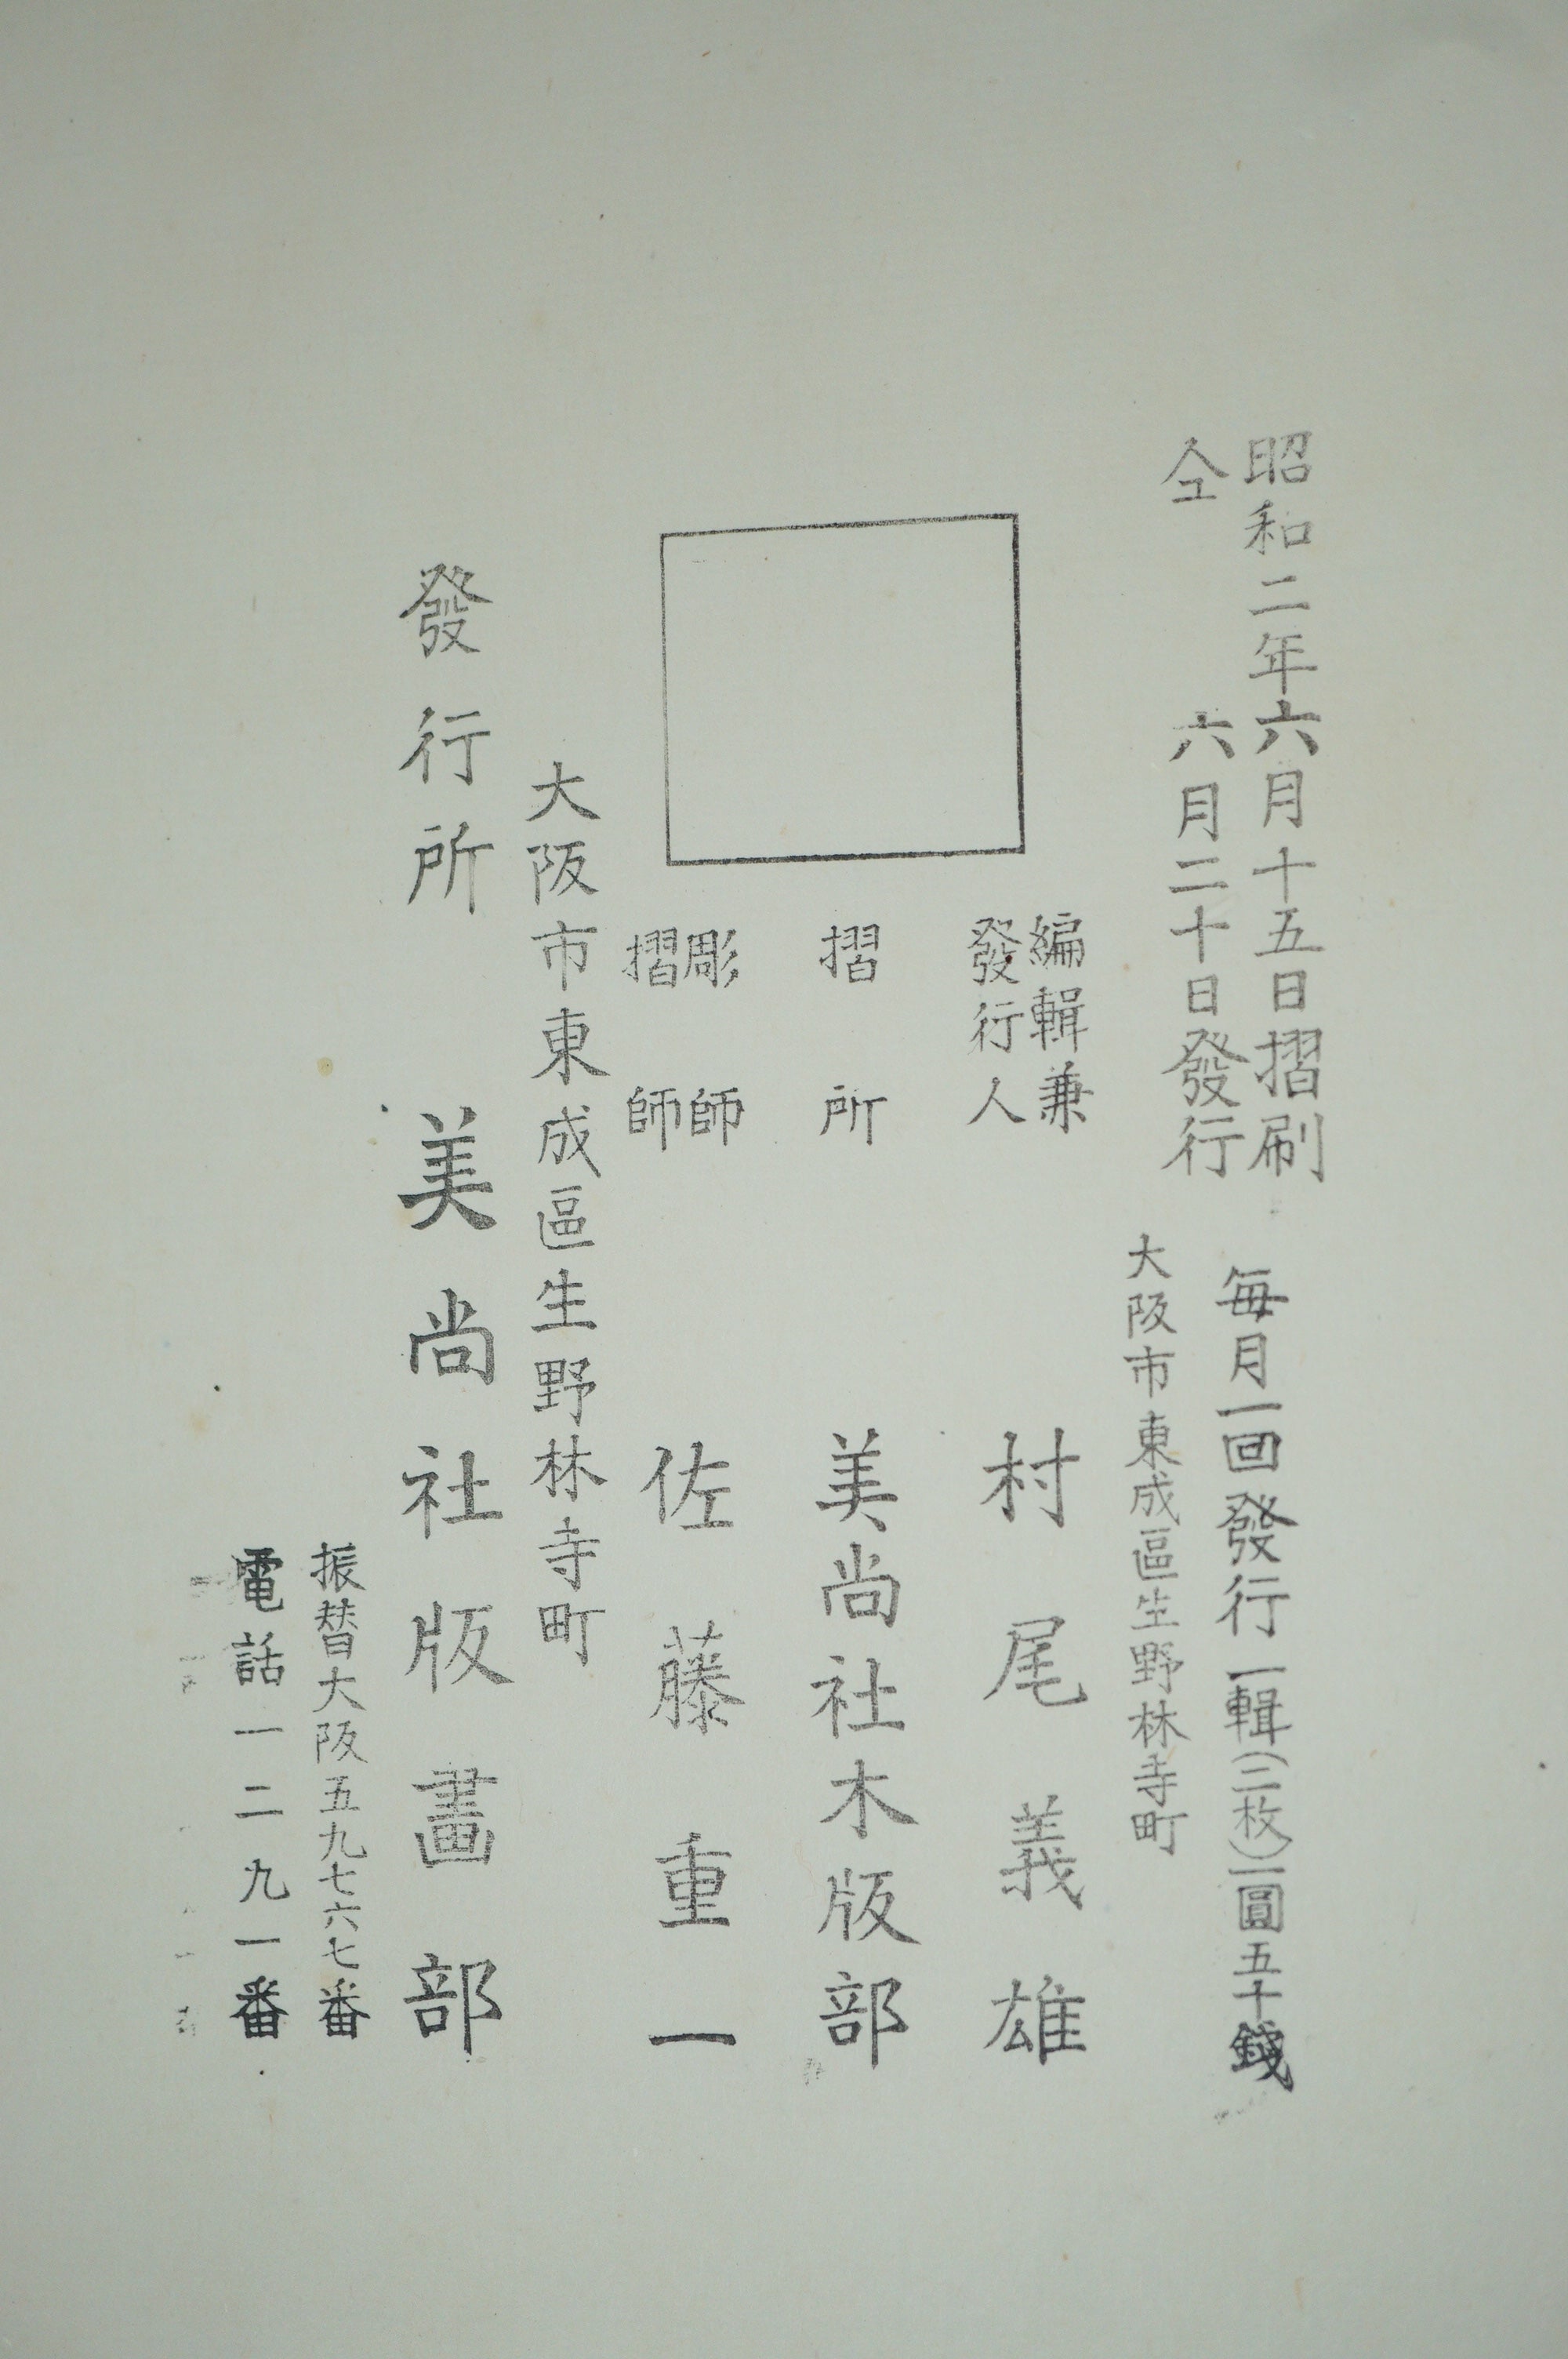 昭和二年六月十五日摺刷
仝　六月二十日發行
毎月一回發行 一輯(二枚)一圓五十錢
大阪市東成區生野林寺町
編輯兼
發行人
村尾義雄
摺所 美尚社木版部
彫師
摺師
佐藤重一
大阪市東成區生野林寺町
發行所 美尚社版畫部
振替大阪五九七六七番
電話一二九一番